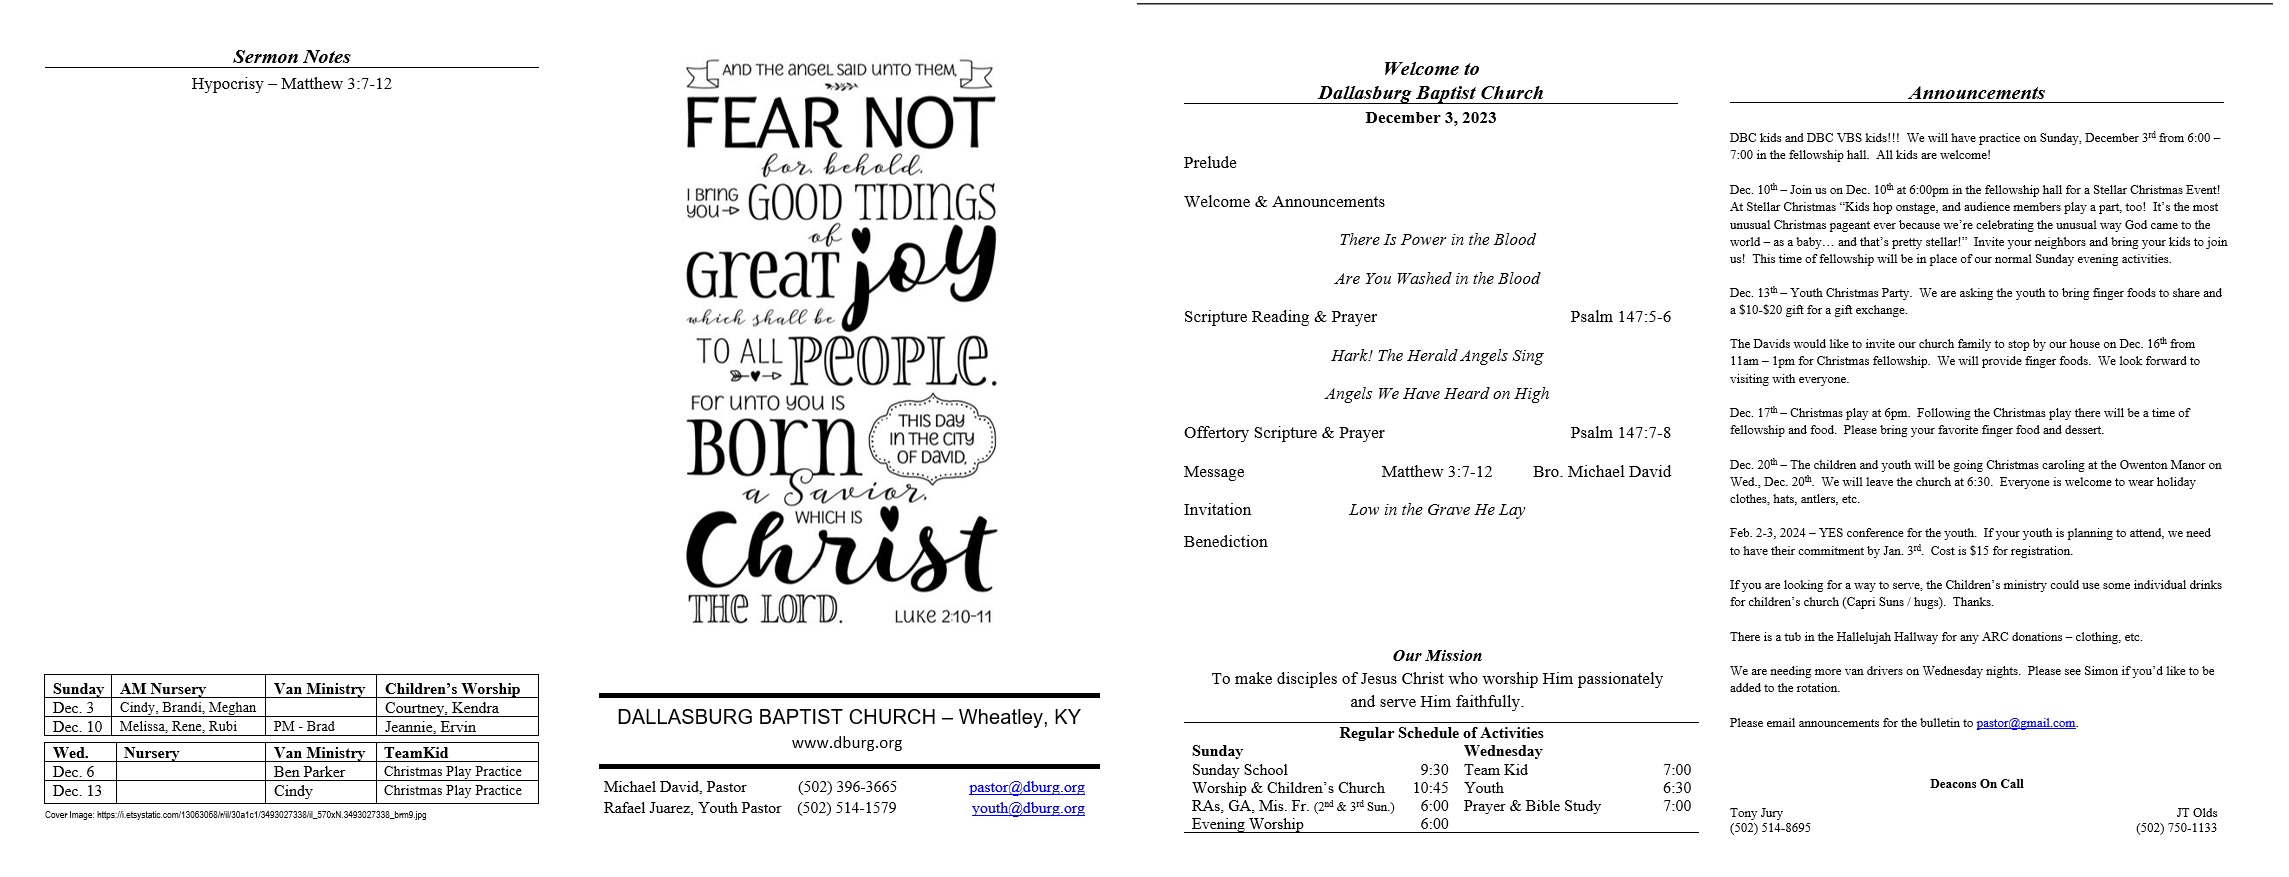 Sermon Notes
Hypocrisy – Matthew 3:7-12
Sunday AM Nursery Van Ministry Children's Worship
Dec. 3 Cindy, Brandi, Meghan Courtney, Kendra
Dec. 10 Melissa, Rene, Rubi PM - Brad Jeannie, Ervin
Wed. Nursery Van Ministry TeamKid
Dec. 6 Ben Parker Christmas Play Practice
Dec. 13 Cindy Christmas Play Practice
Cover Image: https://i.etsystatic.com/13063068/r/il/30a1c1/3493027338/il_570xN.3493027338_brm9.jpg
AND THE ANGEL SAID UNTO THEM,
FEAR NOT
for, behold,
I BRING YOU GOOD TIDINGS
of
GREAT joy
which shall be
TO ALL PEOPLE.
FOR UNTO YOU IS
BORN
THIS DAY
IN THE CITY
OF DAVID,
a Savior,
WHICH IS
Christ
THE LORD.
LUKE 2:10-11
DALLASBURG BAPTIST CHURCH – Wheatley, KY
www.dburg.org
Michael David, Pastor (502) 396-3665 pastor@dburg.org
Rafael Juarez, Youth Pastor (502) 514-1579 youth@dburg.org
Welcome to
Dallasburg Baptist Church
December 3, 2023
Prelude
Welcome & Announcements
There Is Power in the Blood
Are You Washed in the Blood
Scripture Reading & Prayer Psalm 147:5-6
Hark! The Herald Angels Sing
Angels We Have Heard on High
Offertory Scripture & Prayer Psalm 147:7-8
Message Matthew 3:7-12 Bro. Michael David
Invitation Low in the Grave He Lay
Benediction
Our Mission
To make disciples of Jesus Christ who worship Him passionately
and serve Him faithfully.
Regular Schedule of Activities
Sunday Wednesday
Sunday School 9:30 Team Kid 7:00
Worship & Children's Church 10:45 Youth 6:30
RAs, GA, Mis. Fr. (2nd & 3rd Sun.) 6:00 Prayer & Bible Study 7:00
Evening Worship 6:00
Announcements
DBC kids and DBC VBS kids!!! We will have practice on Sunday, December 3rd from 6:00 –
7:00 in the fellowship hall. All kids are welcome!
Dec. 10th – Join us on Dec. 10th at 6:00pm in the fellowship hall for a Stellar Christmas Event!
At Stellar Christmas “Kids hop onstage, and audience members play a part, too! It's the most
unusual Christmas pageant ever because we're celebrating the unusual way God came to the
world – as a baby… and that's pretty stellar!” Invite your neighbors and bring your kids to join
us! This time of fellowship will be in place of our normal Sunday evening activities.
Dec. 13th – Youth Christmas Party. We are asking the youth to bring finger foods to share and
a $10-$20 gift for a gift exchange.
The Davids would like to invite our church family to stop by our house on Dec. 16th from
11am – 1pm for Christmas fellowship. We will provide finger foods. We look forward to
visiting with everyone.
Dec. 17th – Christmas play at 6pm. Following the Christmas play there will be a time of
fellowship and food. Please bring your favorite finger food and dessert.
Dec. 20th – The children and youth will be going Christmas caroling at the Owenton Manor on
Wed., Dec. 20th. We will leave the church at 6:30. Everyone is welcome to wear holiday
clothes, hats, antlers, etc.
Feb. 2-3, 2024 – YES conference for the youth. If your youth is planning to attend, we need
to have their commitment by Jan. 3rd. Cost is $15 for registration.
If you are looking for a way to serve, the Children's ministry could use some individual drinks
for children's church (Capri Suns / hugs). Thanks.
There is a tub in the Hallelujah Hallway for any ARC donations – clothing, etc.
We are needing more van drivers on Wednesday nights. Please see Simon if you'd like to be
added to the rotation.
Please email announcements for the bulletin to pastor@gmail.com.
Deacons On Call
Tony Jury JT Olds
(502) 514-8695 (502) 750-1133